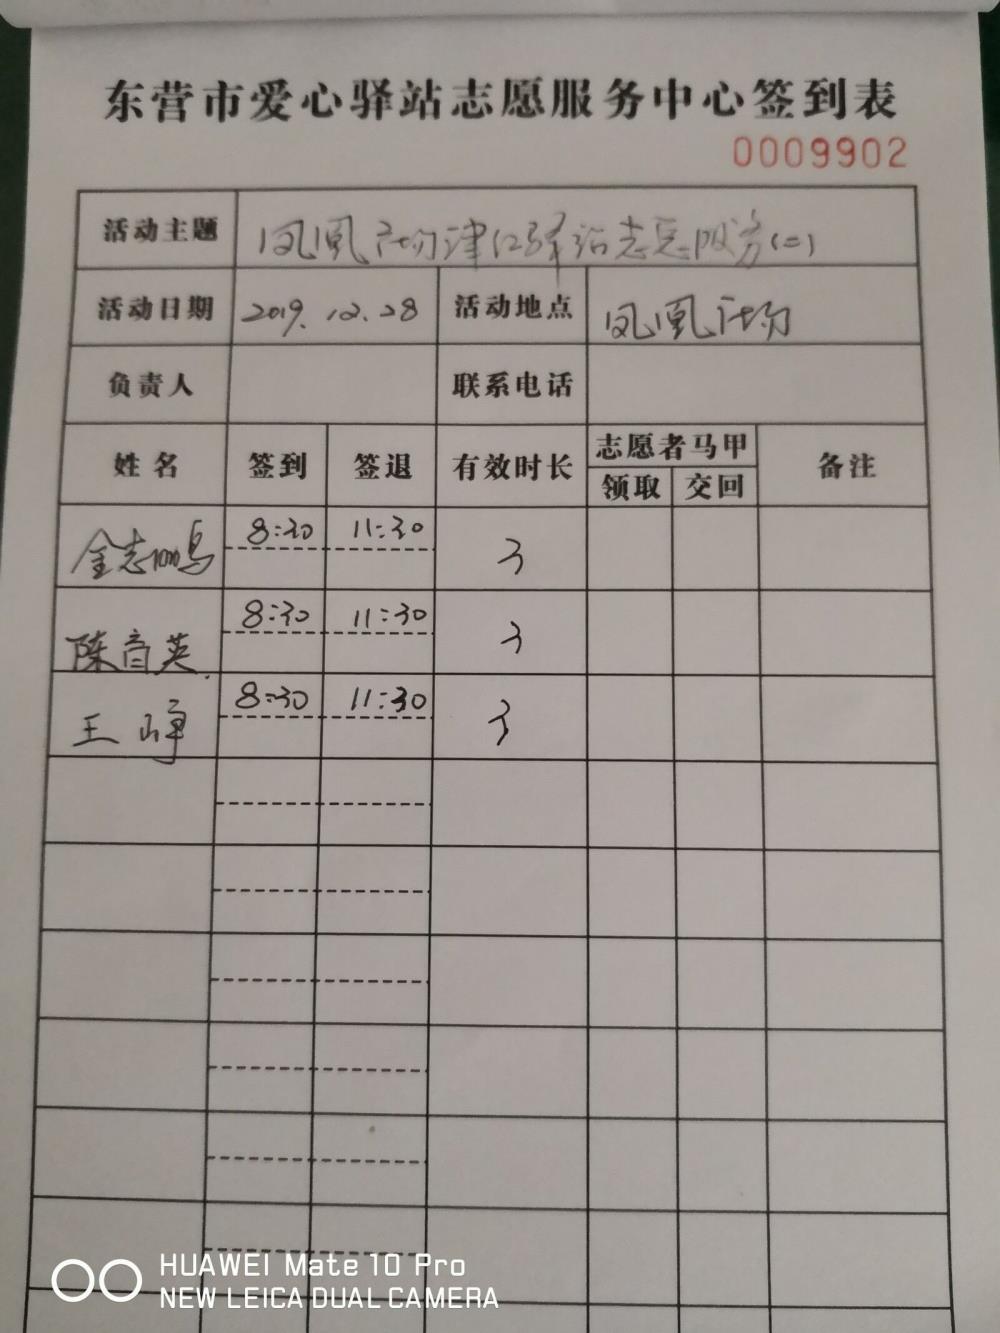 东营市爱心驿站志愿服务中心签到表
0009902
活动主题 凤凰广场津红驿站志愿服务(二)
活动日期 2019.12.28 活动地点 凤凰广场
负责人 联系电话
姓名 签到 签退 有效时长 志愿者马甲 备注
领取 交回
金志鸣 8:30 11:30 3
陈音英 8:30 11:30 3
王峥 8:30 11:30 3
HUAWEI Mate 10 Pro
NEW LEICA DUAL CAMERA